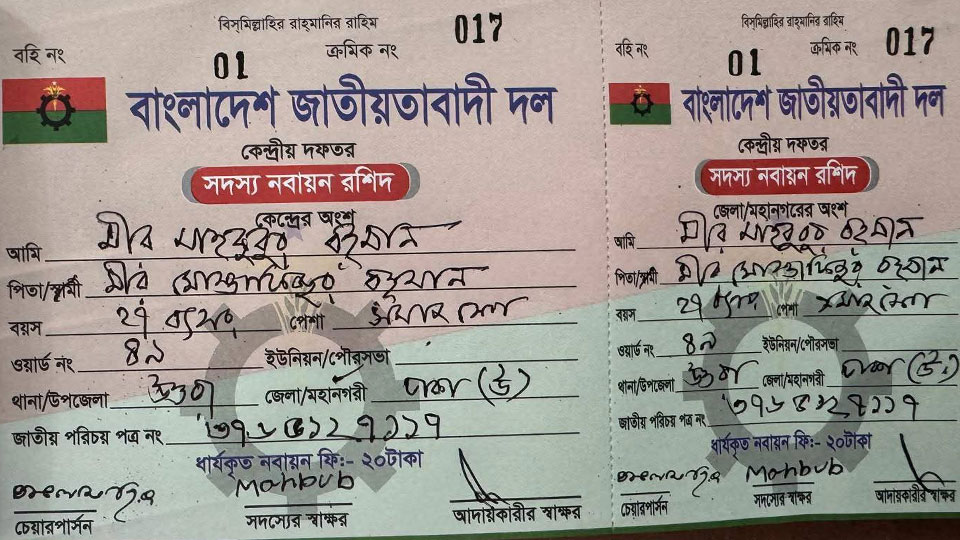 বিস্‌মিল্লাহির রাহ্‌মানির রাহিম
বহি নং 01 ক্রমিক নং 017
বাংলাদেশ জাতীয়তাবাদী দল
কেন্দ্রীয় দফতর
সদস্য নবায়ন রশিদ
কেন্দ্রের অংশ
আমি মীর মাহবুবুর রহমান
পিতা/স্বামী মীর মোস্তাফিজুর রহমান
বয়স ২৭ পেশা
ওয়ার্ড নং ৪৯ ইউনিয়ন/পৌরসভা
থানা/উপজেলা উত্তরা জেলা/মহানগরী ঢাকা (উঃ)
জাতীয় পরিচয় পত্র নং
ধার্যকৃত নবায়ন ফি:- ২০টাকা
Mahbub
চেয়ারপার্সন সদস্যের স্বাক্ষর আদায়কারীর স্বাক্ষর
বিস্‌মিল্লাহির রাহ্‌মানির রাহিম
বহি নং 01 ক্রমিক নং 017
বাংলাদেশ জাতীয়তাবাদী দল
কেন্দ্রীয় দফতর
সদস্য নবায়ন রশিদ
জেলা/মহানগরের অংশ
আমি মীর মাহবুবুর রহমান
পিতা/স্বামী মীর মোস্তাফিজুর রহমান
বয়স ২৭ পেশা
ওয়ার্ড নং ৪৯ ইউনিয়ন/পৌরসভা
থানা/উপজেলা উত্তরা জেলা/মহানগরী ঢাকা (উঃ)
জাতীয় পরিচয় পত্র নং
ধার্যকৃত নবায়ন ফি:- ২০টাকা
Mahbub
চেয়ারপার্সন সদস্যের স্বাক্ষর আদায়কারীর স্বাক্ষর